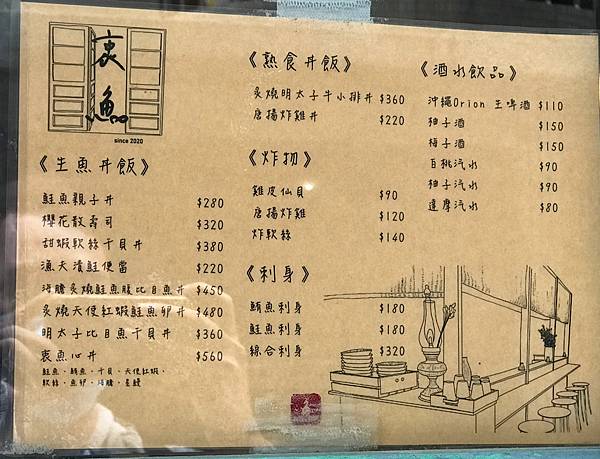 衷魚
since 2020
《生魚丼飯》
鮭魚親子丼 $280
櫻花散壽司 $320
甜蝦軟絲干貝丼 $380
漁夫漬鮭便當 $220
海膽炙燒鮭魚腹比目魚丼 $450
炙燒天使紅蝦鮭魚卵丼 $480
明太子比目魚干貝丼 $360
衷魚心丼 $560
鮭魚、鮪魚、干貝、天使紅蝦、
軟絲、魚卵、海膽、星鰻
《熟食丼飯》
炙燒明太子牛小排丼 $360
唐揚炸雞丼 $220
《炸物》
雞皮仙貝 $90
唐揚炸雞 $120
炸軟絲 $140
《刺身》
鮪魚刺身 $180
鮭魚刺身 $180
綜合刺身 $320
《酒水飲品》
沖繩Orion 生啤酒 $110
柚子酒 $150
梅子酒 $150
白桃汽水 $90
柚子汽水 $90
達摩汽水 $80